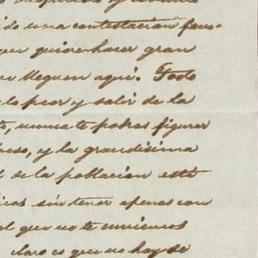 ido una contestación favo-
quiere hacer gran
lleguen aquí. Todo
lo peor y salir de la
nunca te podras figurar
y la grandisima
de la poblacion está
sin tener apenas con
el que no te unimos
claro es que no hay de